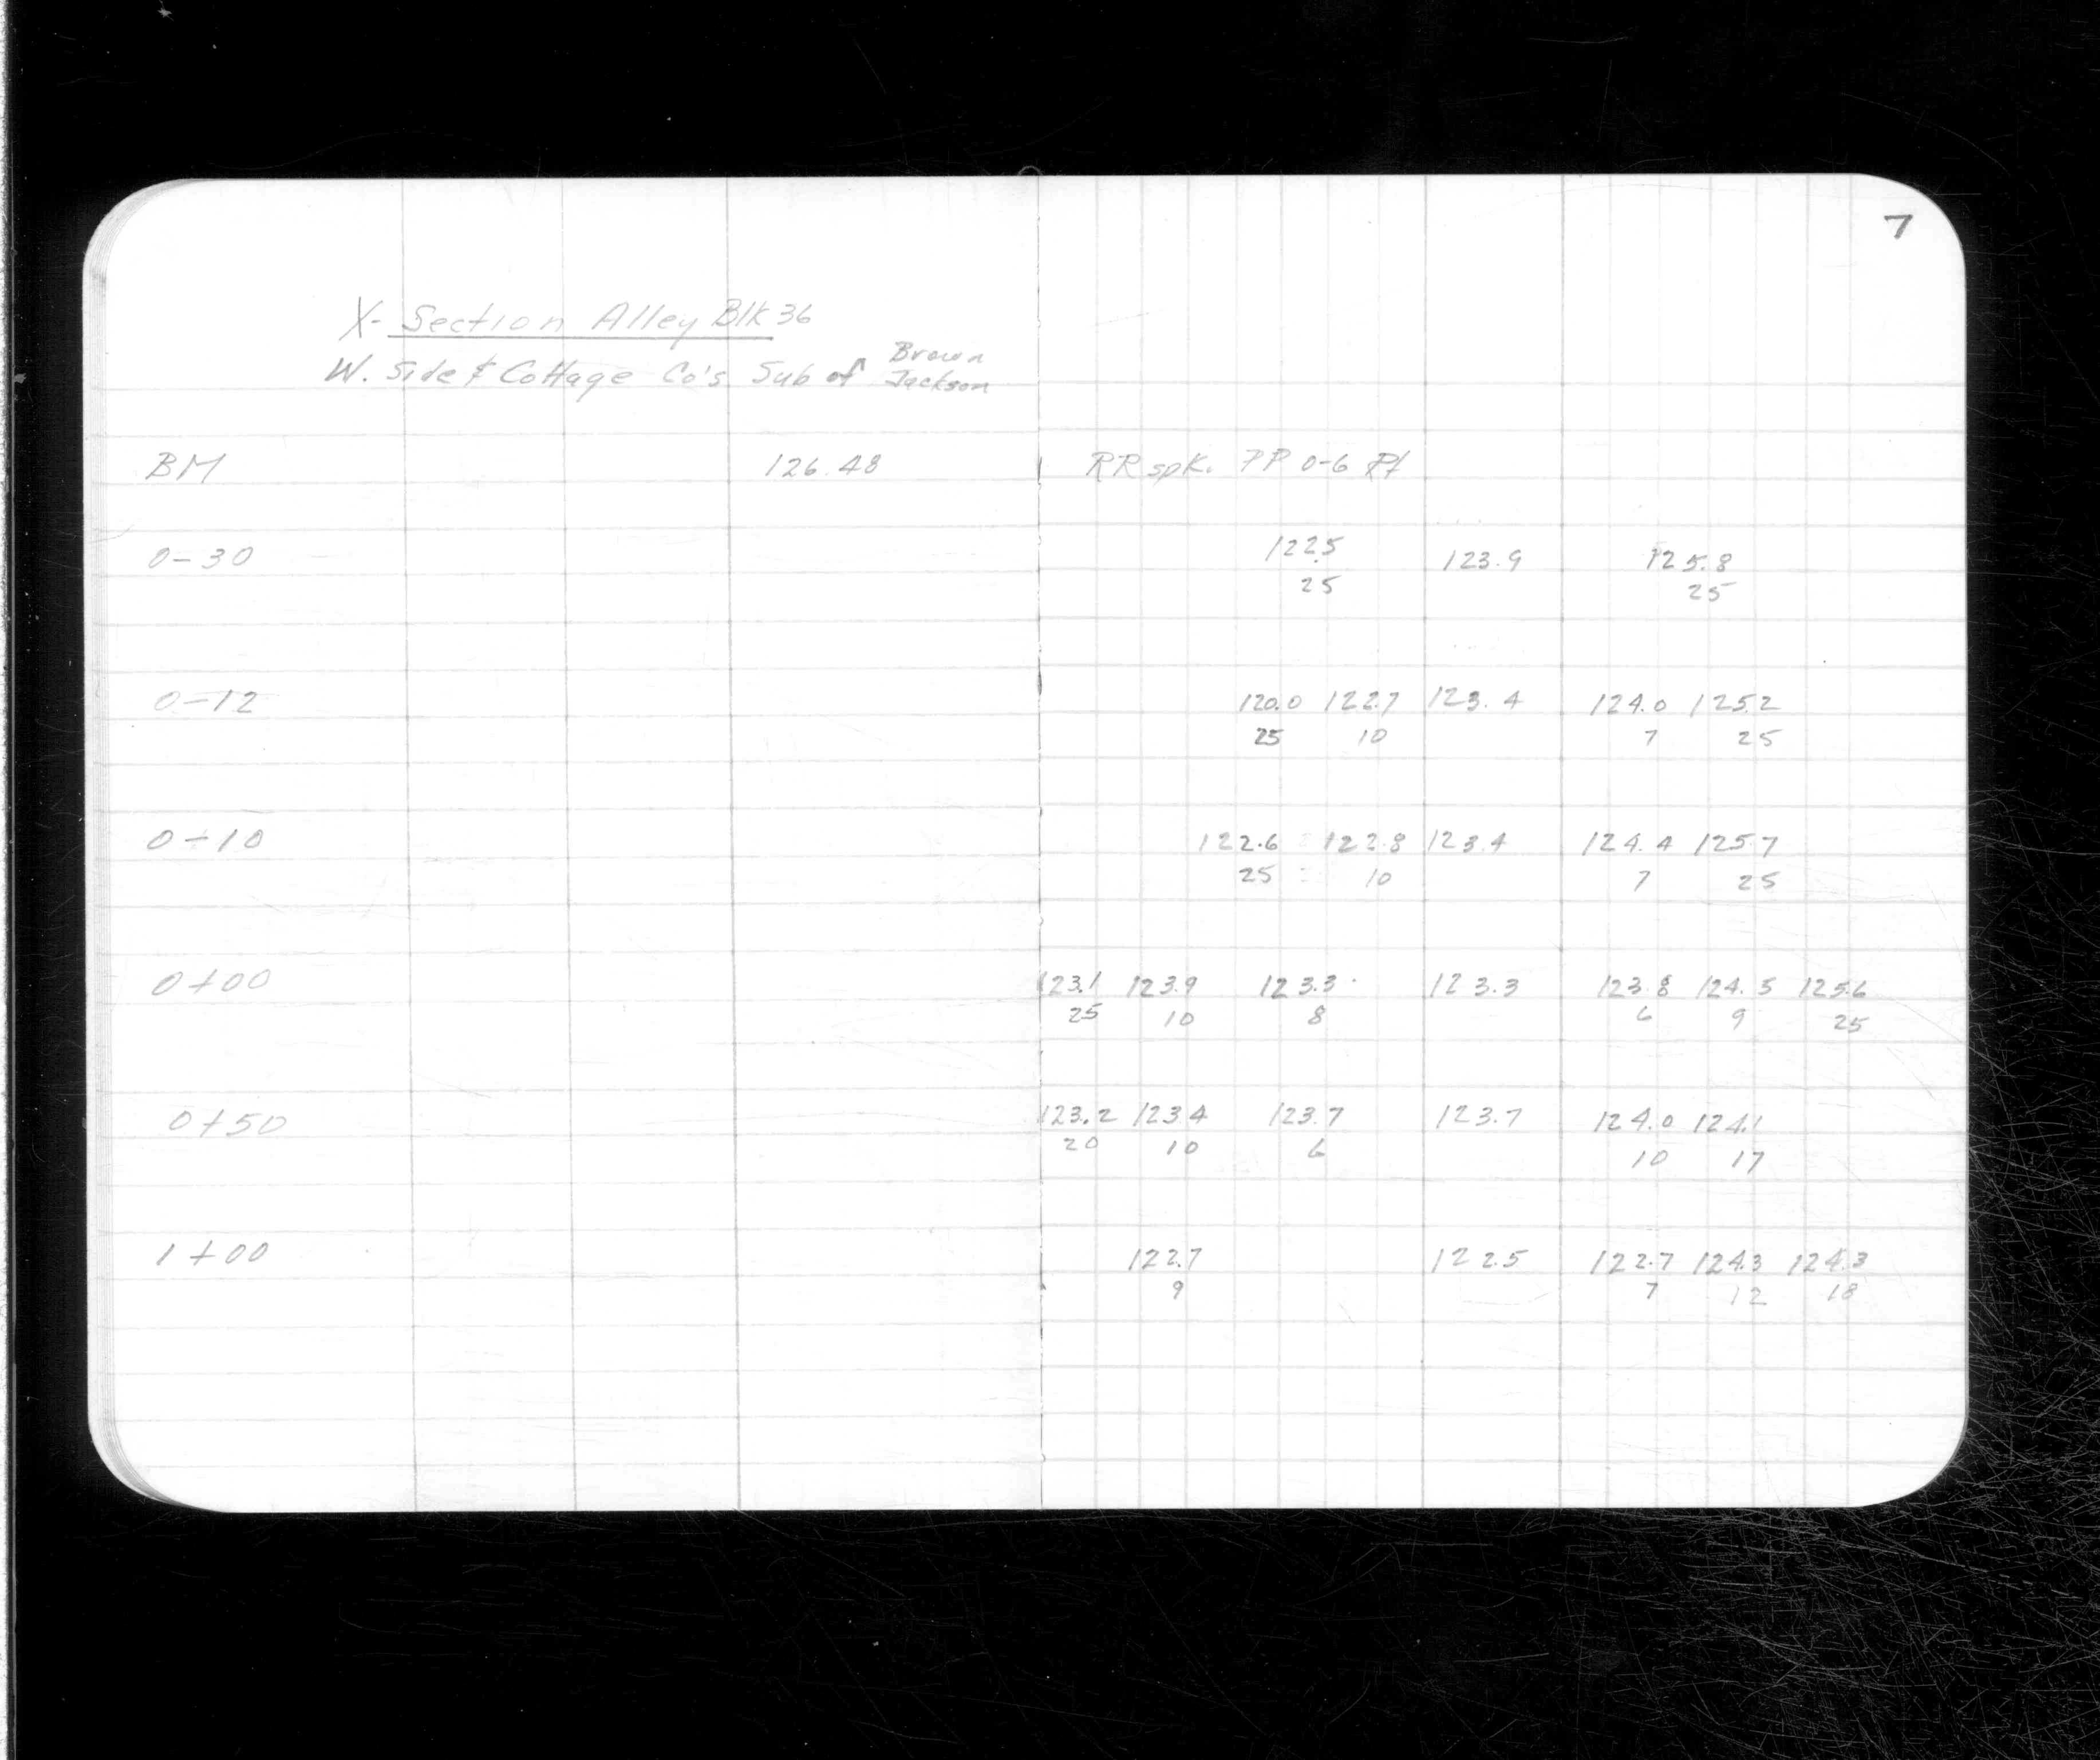 7
X-Section Alley Blk 36
W. Side & Cottage Co's Sub of Brown Jackson
BM 126.48 RR spk. PP 0-6 Rt
0-30 122.5 123.9 125.8
25 25
0-12 120.0 122.7 123.4 124.0 125.2
25 10 7 25
0-10 122.6 122.8 123.4 124.4 125.7
25 10 7 25
0+00 123.1 123.9 123.3 123.3 123.8 124.5 125.6
25 10 8 6 9 25
0+50 123.2 123.4 123.7 123.7 124.0 124.1
20 10 6 10 17
1+00 122.7 122.5 122.7 124.3 124.3
9 7 12 18